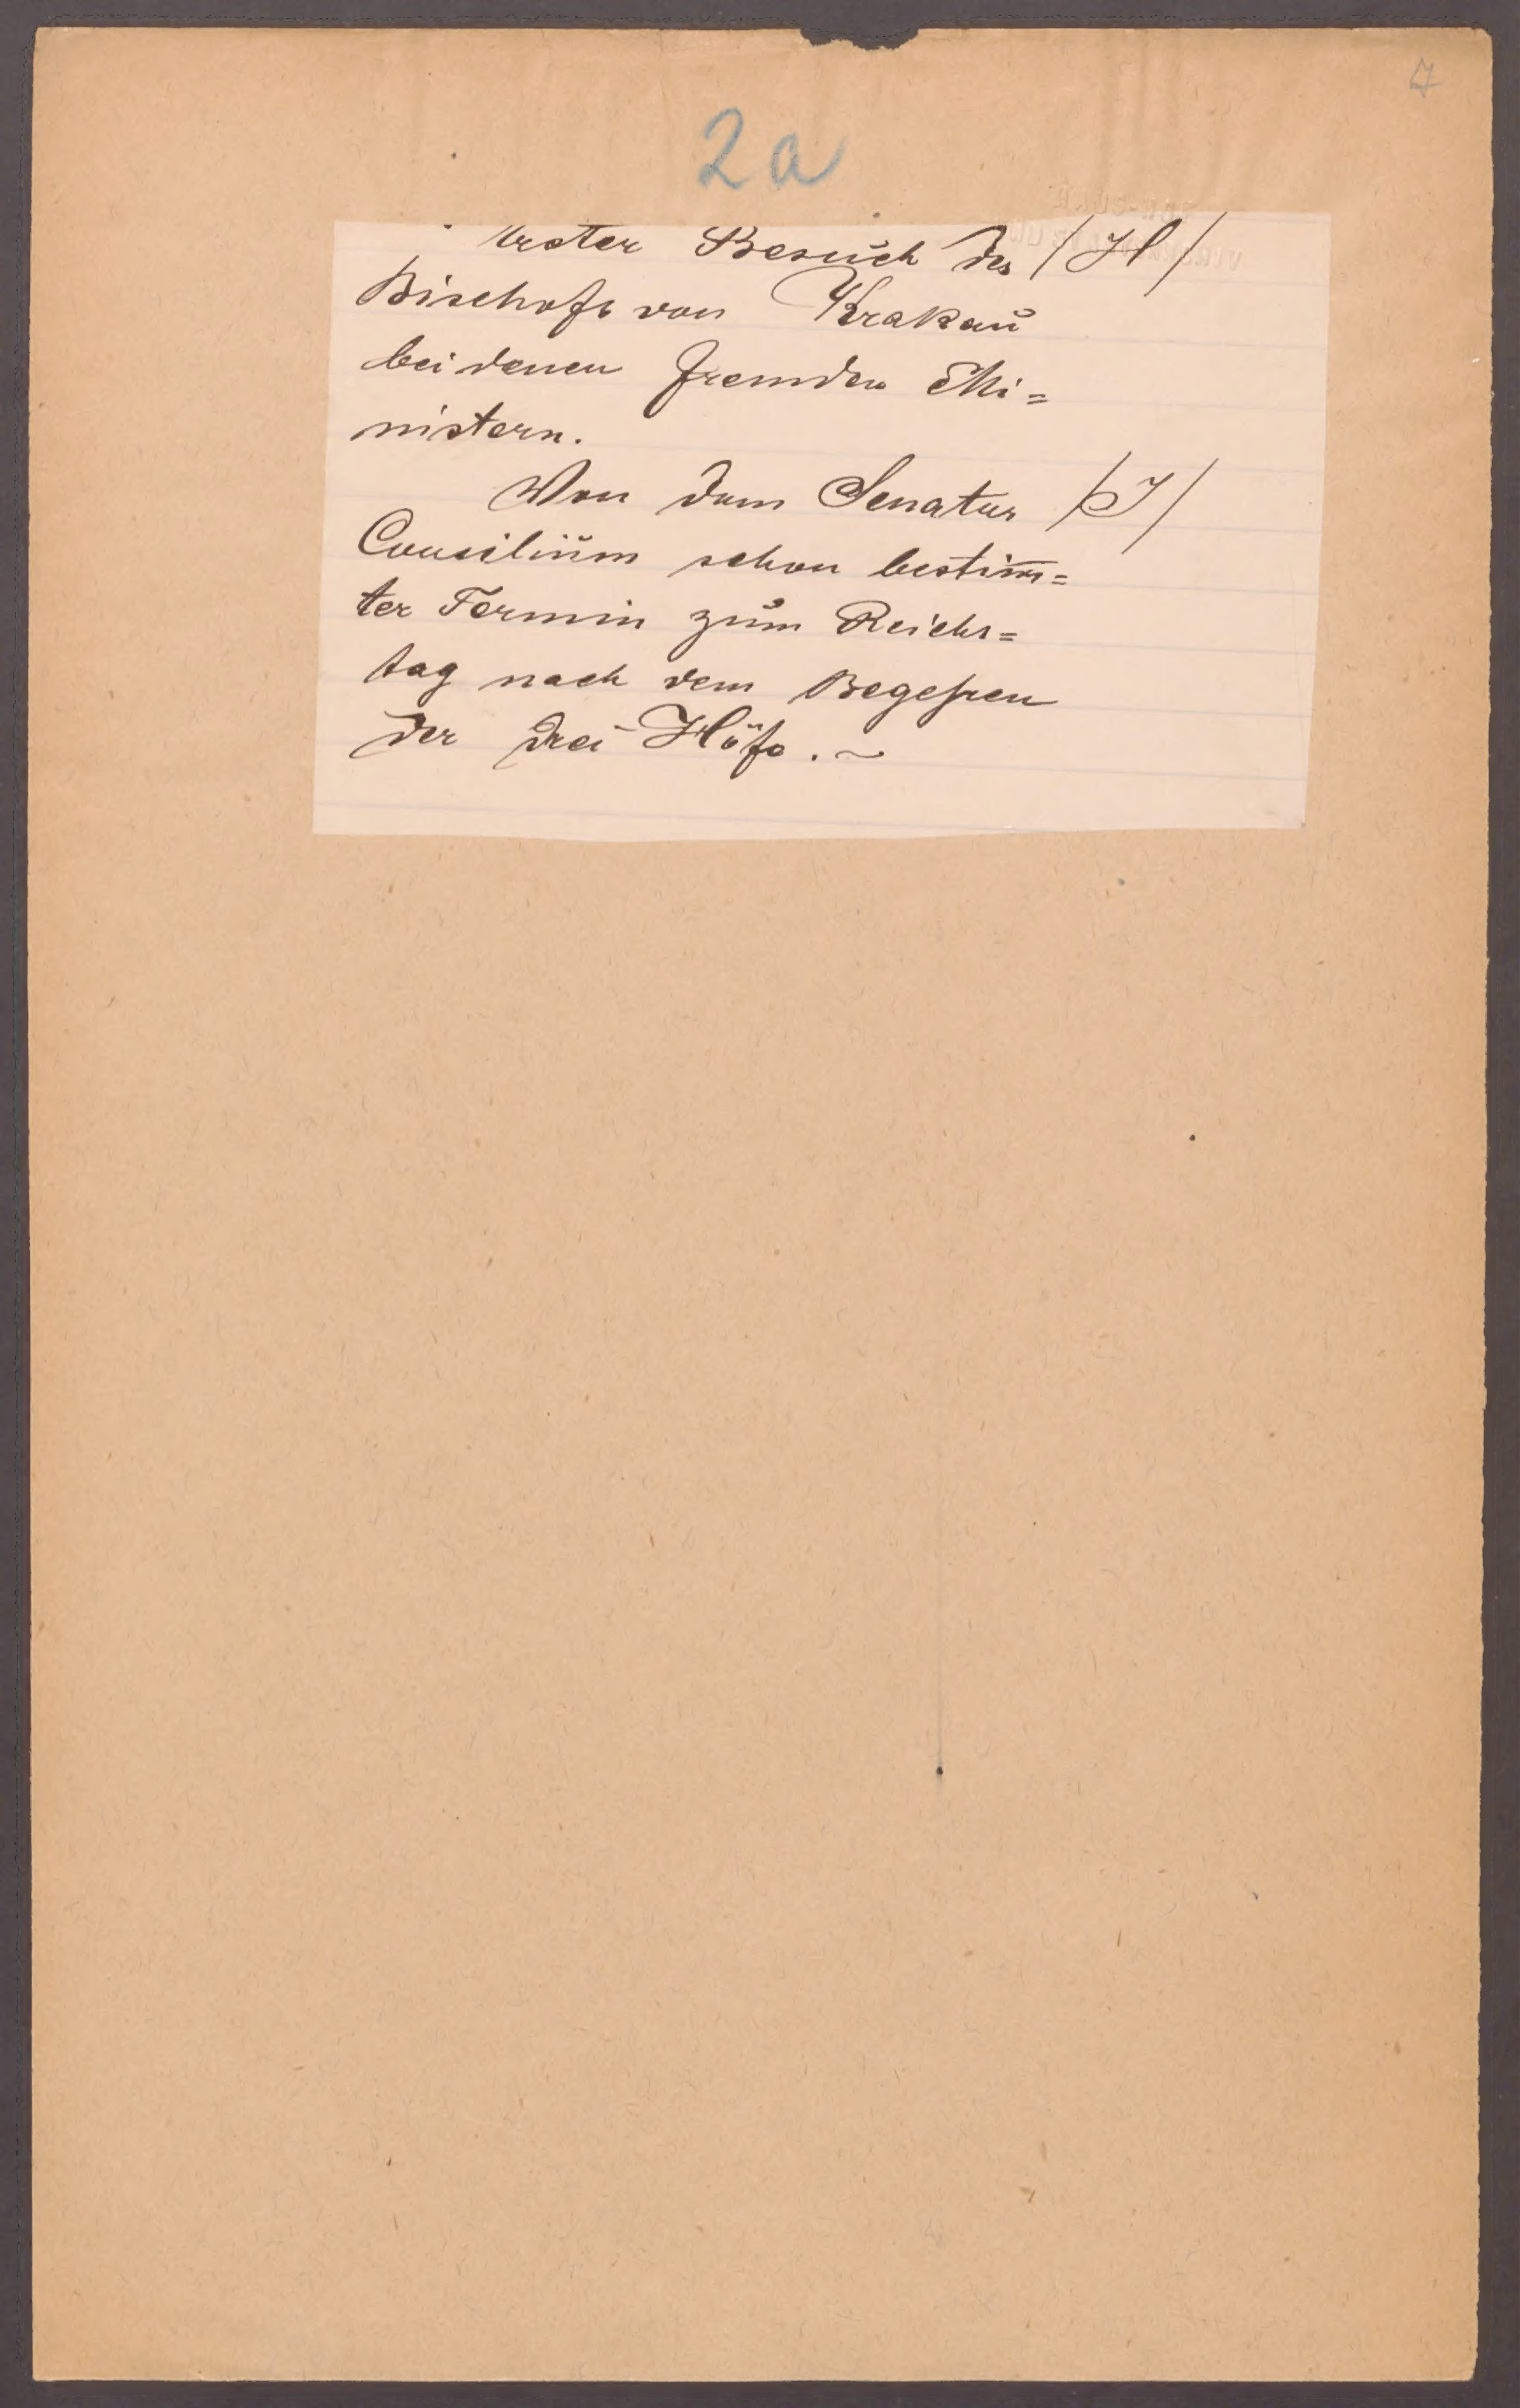 7
2a
Erster Besuch des /H/
Bischofs von Krakau
bei denen fremden Mi=
nistern.
Von dem Senatus /J/
Consilium schon bestim̄=
ter Termin zum Reichs=
tag nach dem Begehren
der drei Höfe. ~